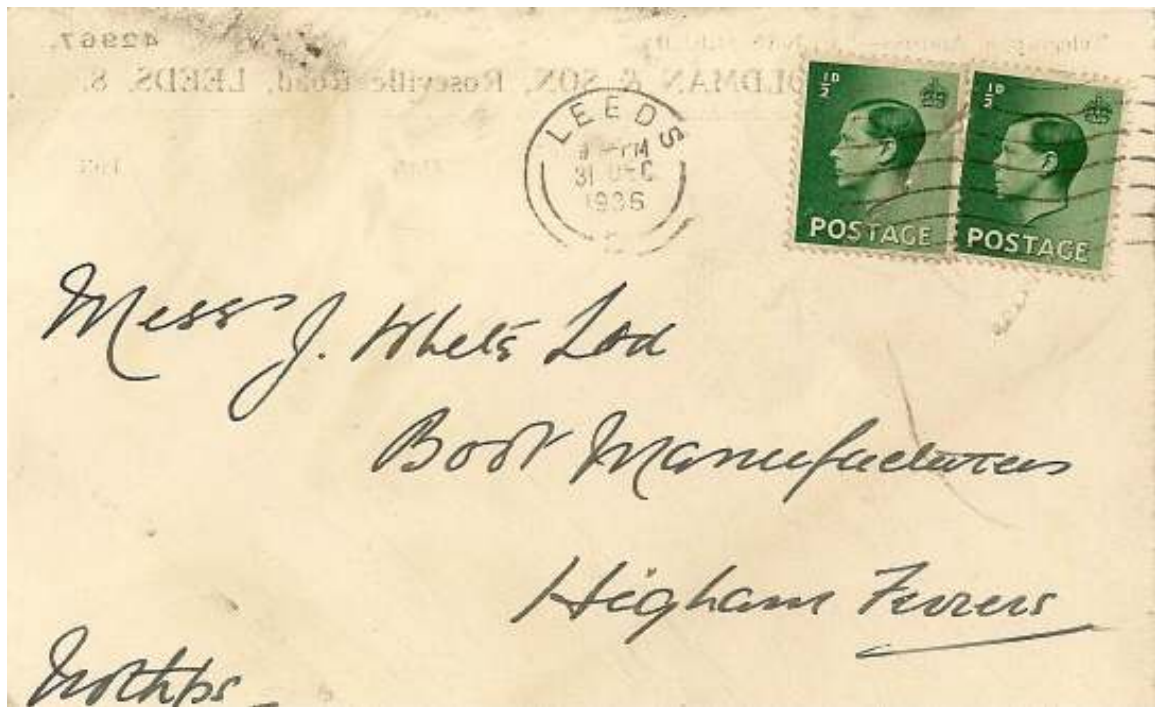 42967.
OLDMAN & SON, Roseville Road, LEEDS, 8.
½D ½D
LEEDS
PM
31 DEC
1936
POSTAGE POSTAGE
Messrs J. White Ltd
Boot Manufacturers
Higham Ferrers
Northps